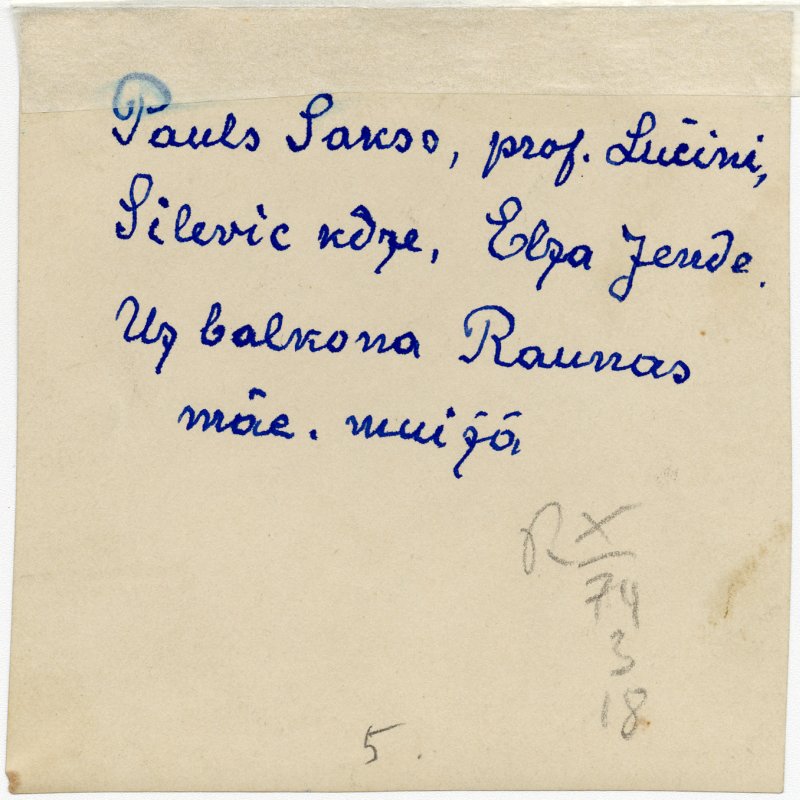 Pauls Sakss, prof. Lučini,
Silevic kdze, Elza Jende.
Uz balkona Raunas
māc. muižā
RX
74
3
18
5.